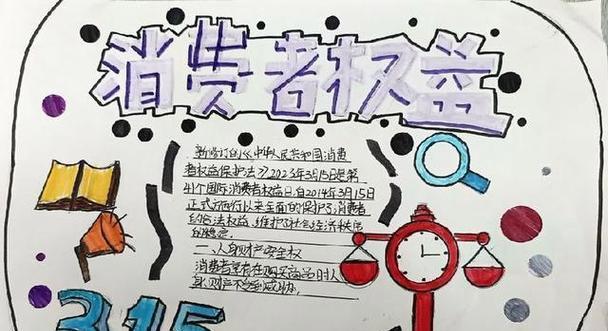 消费者权益
新修订的《中华人民共和国消费
者权益保护法》2023年3月15日是第
41个国际消费者权益日,自2014年3月15日
正式施行以来全面的保护了消费者
的合法权益、维护了社会经济秩序
的稳定.
一、人身财产安全权
消费者享有在购买商品时人
身、财产不受到威胁.
315